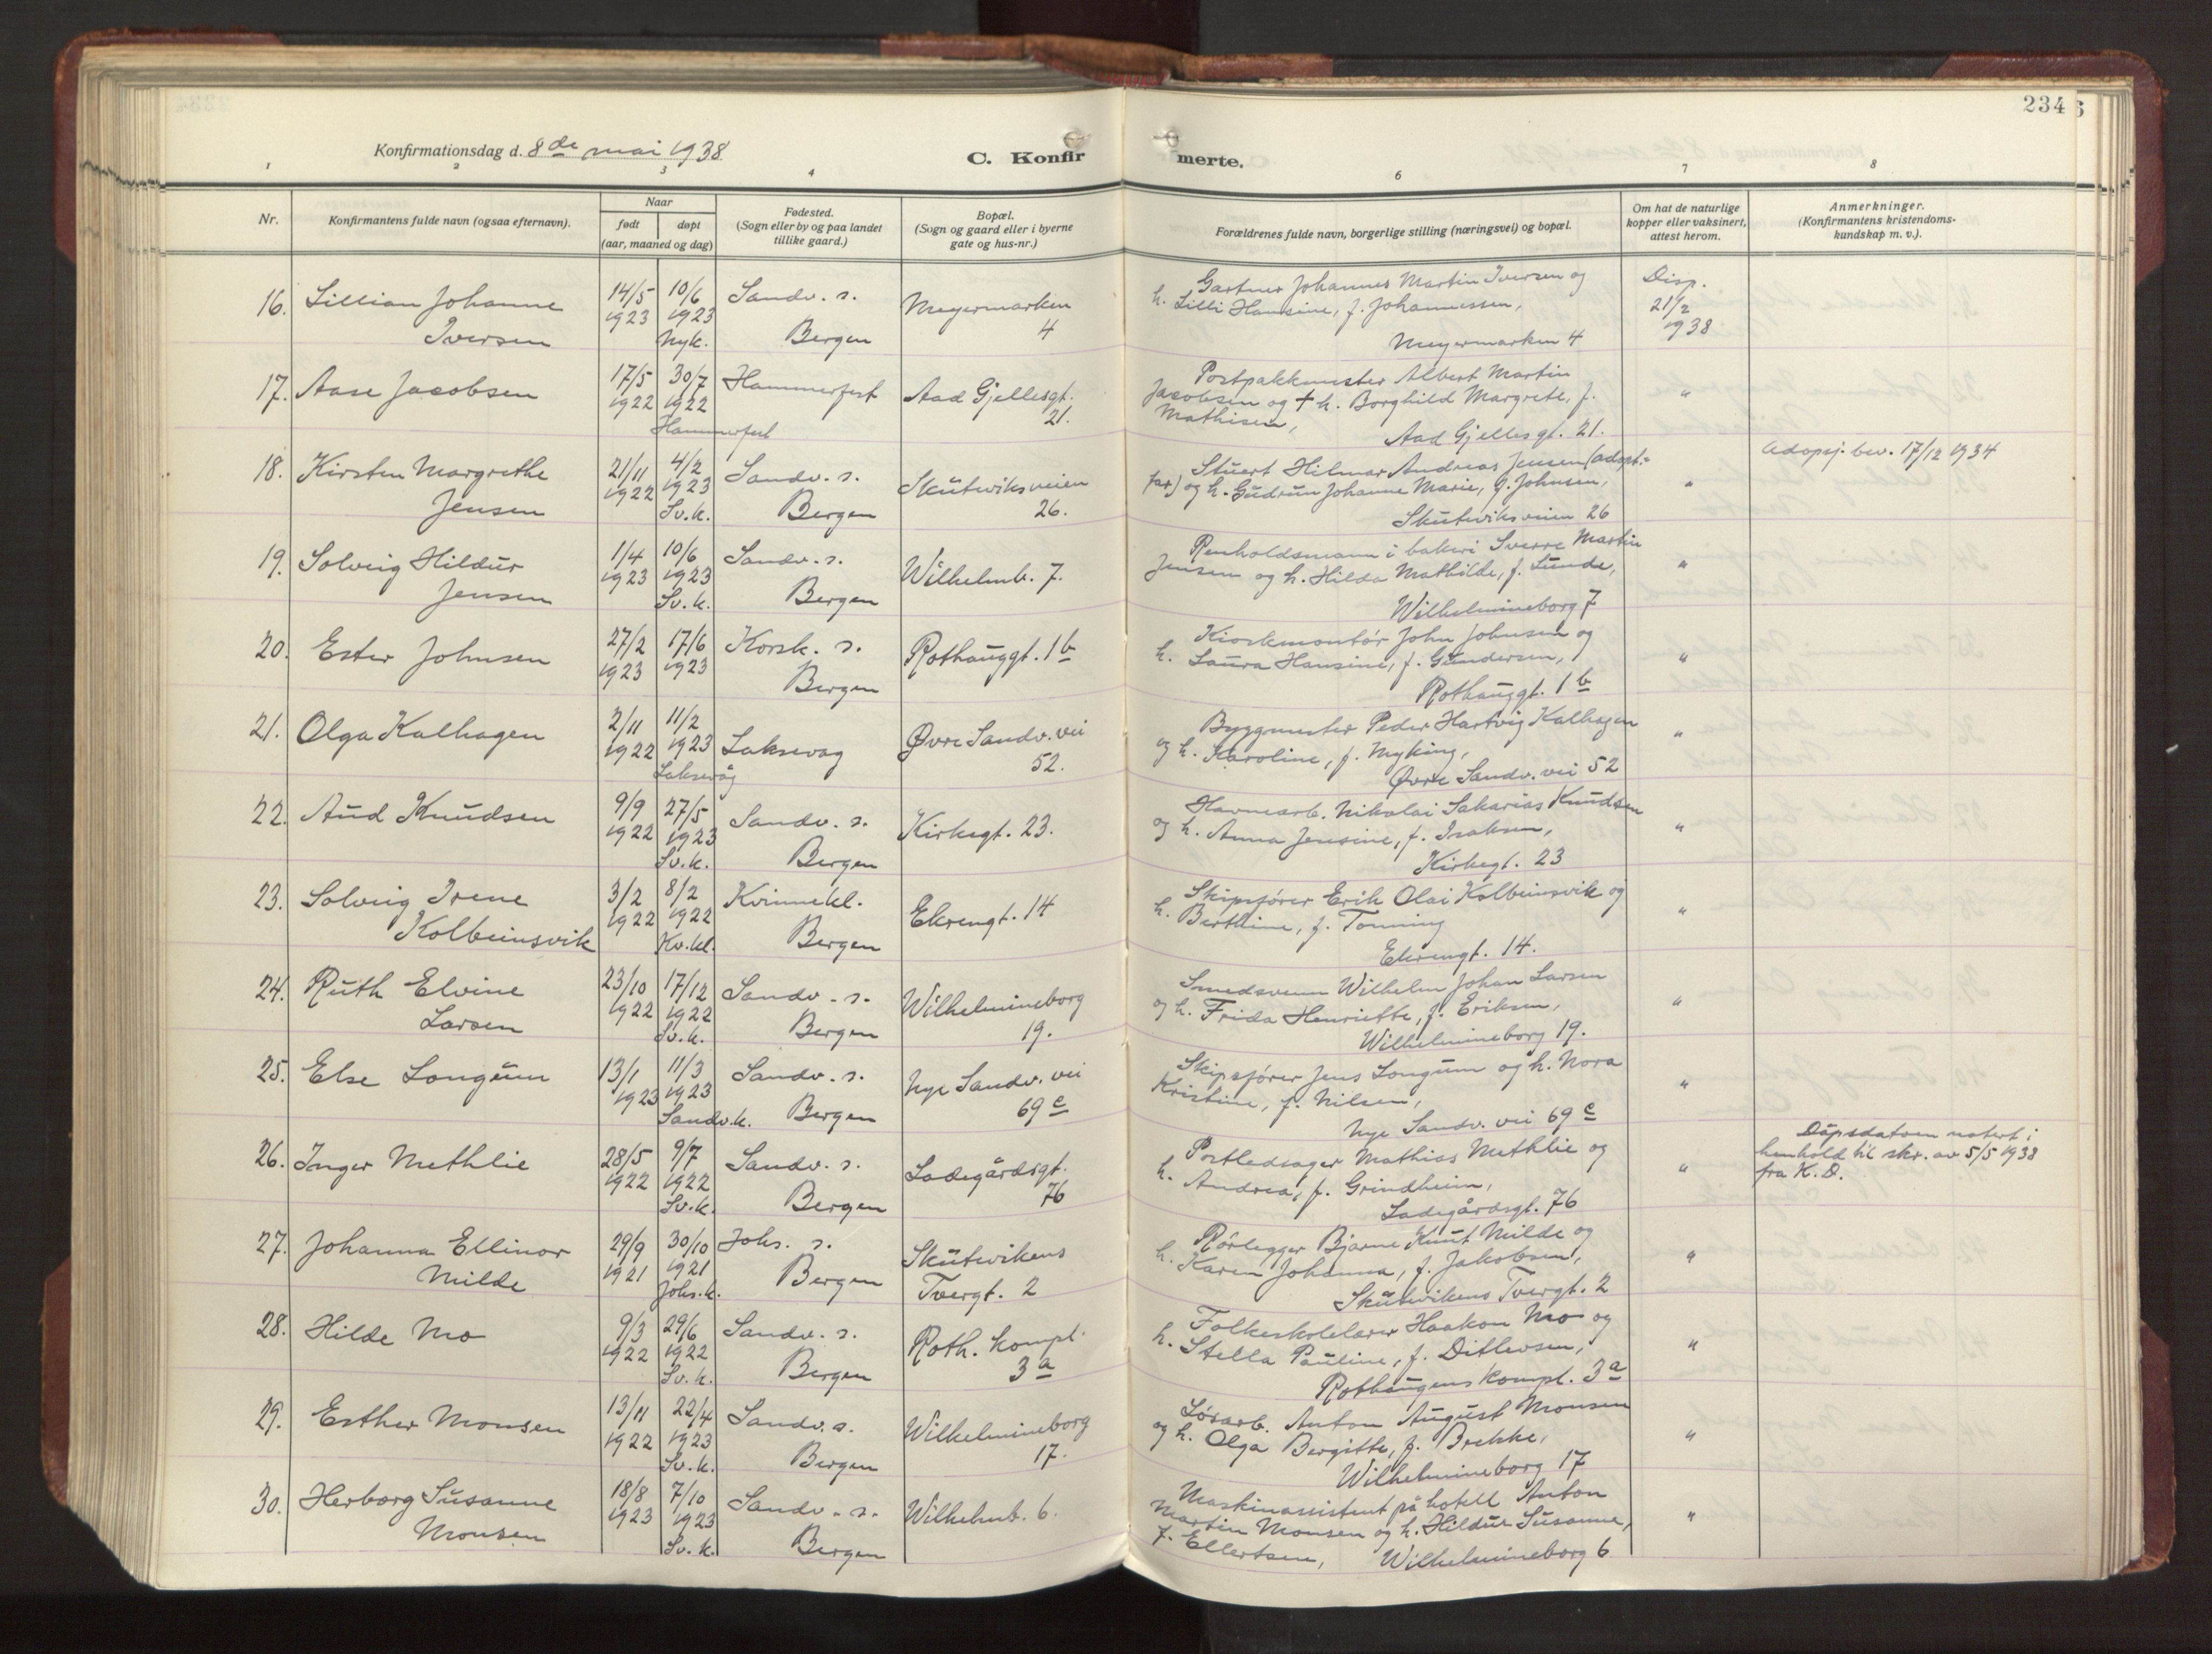 234
Konfirmationsdag d. 8de mai 1938
C. Konfirmerte.
1 2 3 4 6 7 8
Nr.
Konfirmantens fulde navn (ogsaa efternavn).
Naar
født døpt
(aar, maaned og dag)
Fødested.
(Sogn eller by og paa landet
tillike gaard.)
Bopæl.
(Sogn og gaard eller i byerne
gate og hus-nr.)
Forældrenes fulde navn, borgerlige stilling (næringsvei) og bopæl.
Om hat de naturlige
kopper eller vaksinert,
attest herom.
Anmerkninger.
(Konfirmantens kristendoms-
kundskap m. v.).
16. Lillian Johanne
Iversen
14/5
1923
10/6
1923
Nyk.
Sandv. s.
Bergen
Meyermarken
4
Gartner Johannes Martin Iversen og
h. Lilli Hansine, f. Johannessen,
Meyermarken 4
Disp.
21/2
1938
17. Aase Jacobsen
17/5
1922
30/7
1922
Hammerfest
Hammerfest
Aad Gjellesgt.
21.
Postpakkmester Albert Martin
Jacobsen og † h. Borghild Margrete, f.
Mathisen,
Aad Gjellesgt. 21.
"
18. Kirsten Margrethe
Jensen
21/11
1922
4/2
1923
Sv.k.
Sandv. s.
Bergen
Skuteviksveien
26.
Stuert Hilmar Andreas Jensen (adopt.-
far) og h. Gudrun Johanne Marie, f. Johnsen,
Skuteviksveien 26
"
Adopsj. bev. 17/12 1934
19. Solveig Hildur
Jensen
1/4
1923
10/6
1923
Sv.k.
Sandv. s.
Bergen
Wilhelmb. 7.
Renholdsmann i bakeri Sverre Martin
Jensen og h. Hilda Mathilde, f. Lunde,
Wilhelmineborg 7
"
20. Ester Johnsen
27/2
1923
17/6
1923
Korsk. s.
Bergen
Rothauggt. 1b
Kioskmontør John Johnsen og
h. Laura Hansine, f. Gundersen,
Rothauggt. 1b
"
21. Olga Kalhagen
2/11
1922
11/2
1923
Laksevåg
Laksevag
Øvre Sandv. vei
52.
Byggmester Peder Hartvig Kalhagen
og h. Karoline, f. Myking,
Øvre Sandv. vei 52
"
22. Aud Knudsen
9/9
1922
27/5
1923
Sv.k.
Sandv. s.
Bergen
Kirkegt. 23.
Havnearb. Nikolai Sakarias Knudsen
og h. Anna Jensine, f. Isaksen,
Kirkegt. 23
"
23. Solveig Irene
Kolbeinsvik
3/2
1922
8/2
1922
Kv.kl.
Kvinnekl.
Bergen
Ekrengt. 14
Skipsfører Erik Olai Kolbeinsvik og
h. Berthine, f. Tonning
Ekrengt. 14.
"
24. Ruth Elvine
Larsen
23/10
1922
17/12
1922
Sv.k.
Sandv. s.
Bergen
Wilhelmineborg
19.
Smedsvenn Wilhelm Johan Larsen
og h. Frida Henriette, f. Eriksen,
Wilhelmineborg 19.
"
25. Else Longum
13/1
1923
11/3
1923
Sandv.k.
Sandv. s.
Bergen
Nye Sandv. vei
69c
Skipsfører Jens Longum og h. Nora
Kristine, f. Nilsen,
Nye Sandv. vei 69c
"
26. Inger Methlie
28/5
1922
9/7
1922
Sv.k.
Sandv. s.
Bergen
Ladegårdsgt.
76
Postledsager Mathias Methlie og
h. Andrea, f. Grindheim,
Ladegårdsgt. 76
"
Dåpsdatoen notert i
henhold til skr. av 5/5 1938
fra K. D.
27. Johanna Ellinor
Milde
29/9
1921
30/10
1921
Johs.k.
Johs. s.
Bergen
Skutevikens
Tvergt. 2
Rørlegger Bjarne Knut Milde og
h. Karen Johanna, f. Jakobsen,
Skutevikens Tvergt. 2
"
28. Hilde Mo
9/3
1922
29/6
1922
Sv.k.
Sandv. s.
Bergen
Roth. kompl.
3a
Folkeskolelærer Haakon Mo og
h. Stella Pauline, f. Ditlevsen,
Rothaugens kompl. 3a
"
29. Esther Monsen
13/11
1922
22/4
1923
Sv.k.
Sandv. s.
Bergen
Wilhelmineborg
17.
Løsarb. Anton August Monsen
og h. Olga Bergitte, f. Brekke,
Wilhelmineborg 17
"
30. Herborg Susanne
Monsen
18/8
1923
7/10
1923
Sv.k.
Sandv. s.
Bergen
Wilhelmb. 6.
Maskinassistent på hotell Anton
Martin Monsen og h. Hildur Susanne,
f. Ellertsen, Wilhelmineborg 6
"